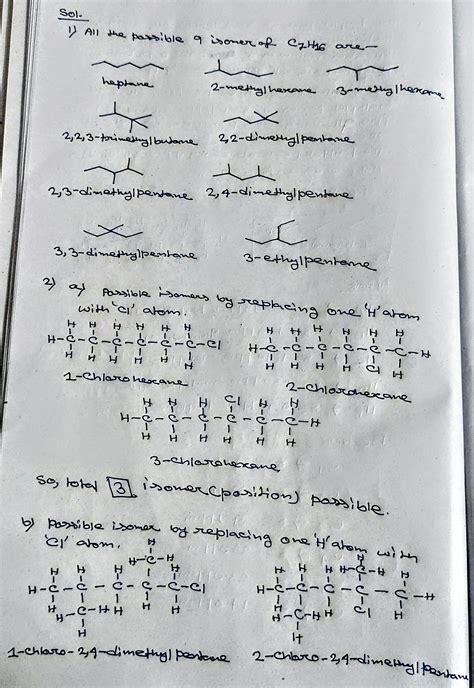 Sol.
1) All the possible 9 isomer of C7H16 are—
heptane 2-methylhexane 3-methylhexane
2,2,3-trimethylbutane 2,2-dimethylpentane
2,3-dimethylpentane 2,4-dimethylpentane
3,3-dimethylpentane 3-ethylpentane
2) a) Possible isomers by replacing one 'H' atom
with 'Cl' atom.
H H H H H H H H H H H H
H-C-C-C-C-C-C-Cl H-C-C-C-C-C-C-H
H H H H H H H H H H Cl H
1-Chlorohexane 2-Chlorohexane
H H H Cl H H
H-C-C-C-C-C-C-H
H H H H H H
3-chlorohexane
So, total 3 isomer (position) possible.
b) Possible isomer by replacing one 'H' atom with
'Cl' atom.
1-chloro-2,4-dimethylpentane 2-chloro-2,4-dimethylpentane